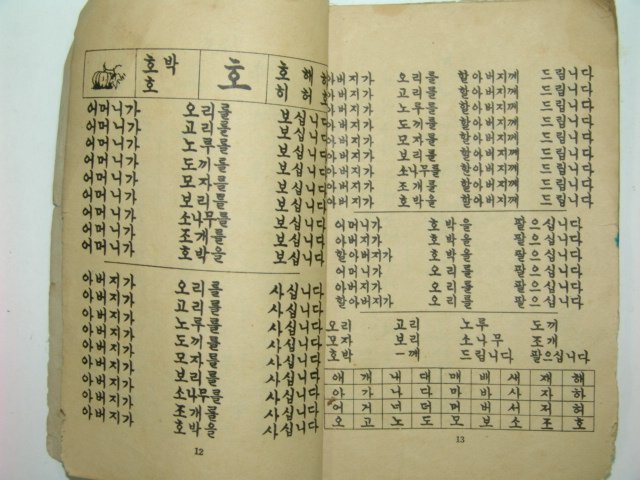 호박 호 호 해
호 히 허
어머니가 오리를 보십니다
어머니가 고리를 보십니다
어머니가 노루를 보십니다
어머니가 도끼를 보십니다
어머니가 모자를 보십니다
어머니가 보리를 보십니다
어머니가 소나무를 보십니다
어머니가 조개를 보십니다
어머니가 호박을 보십니다
아버지가 오리를 사십니다
아버지가 고리를 사십니다
아버지가 노루를 사십니다
아버지가 도끼를 사십니다
아버지가 모자를 사십니다
아버지가 보리를 사십니다
아버지가 소나무를 사십니다
아버지가 조개를 사십니다
아버지가 호박을 사십니다
12
아버지가 오리를 할아버지께 드립니다
아버지가 고리를 할아버지께 드립니다
아버지가 노루를 할아버지께 드립니다
아버지가 도끼를 할아버지께 드립니다
아버지가 모자를 할아버지께 드립니다
아버지가 보리를 할아버지께 드립니다
아버지가 소나무를 할아버지께 드립니다
아버지가 조개를 할아버지께 드립니다
아버지가 호박을 할아버지께 드립니다
어머니가 호박을 팔으십니다
아버지가 호박을 팔으십니다
할아버지가 호박을 팔으십니다
어머니가 오리를 팔으십니다
아버지가 오리를 팔으십니다
할아버지가 오리를 팔으십니다
오리 고리 노루 도끼
모자 보리 소나무 조개
호박 ―께 드립니다 팔으십니다
애 개 내 대 매 배 새 재 해
아 가 나 다 마 바 사 자 하
어 거 너 더 머 버 서 저 허
오 고 노 도 모 보 소 조 호
13